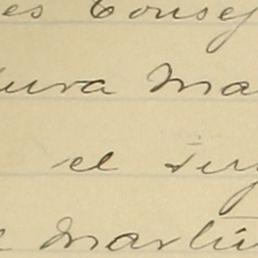 es Consej
ura Ma
el
e Martín